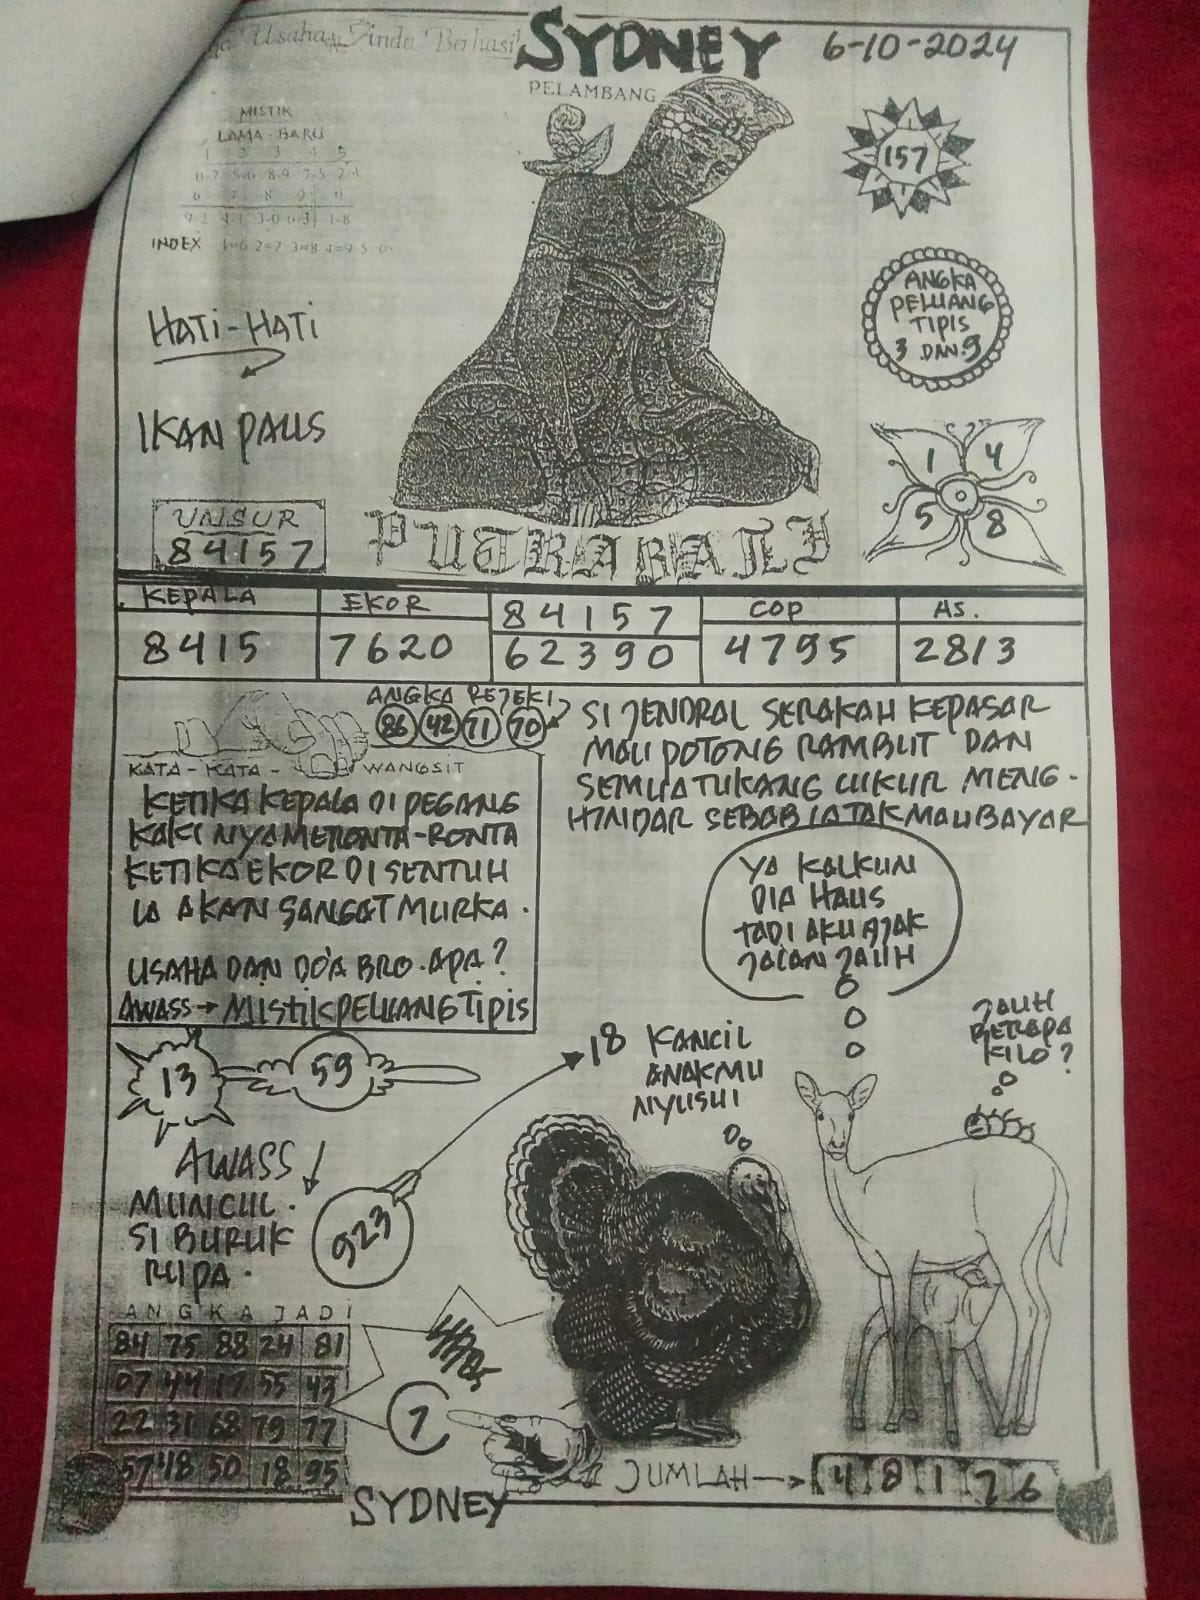 Usaha Anda Berhasil
SYDNEY
6-10-2024
PELAMBANG
MISTIK
LAMA-BARU
1 2 3 4 5
0-7 5-6 8-9 7-5 2-4
6 7 8 9 0
9-2 4-1 3-0 6-3 1-8
INDEX 1=6 2=7 3=8 4=9 5=0
157
ANGKA
PELUANG
TIPIS
3 DAN 9
HATI-HATI
IKAN PAUS
1 4
5 8
UNSUR
84157
PUTRA BALI
KEPALA
8415
EKOR
7620
84157
62390
COP
4795
AS.
2813
ANGKA REJEKI
86 42 71 70
KATA-KATA- WANGSIT
KETIKA KEPALA DI PEGANG
KAKI NYA MERONTA-RONTA
KETIKA EKOR DI SENTUH
IA AKAN SANGAT MURKA.
USAHA DAN DO'A BRO. APA?
AWASS → MISTIK PELUANG TIPIS
SI JENDRAL SERAKAH KEPASAR
MAU POTONG RAMBUT DAN
SEMUA TUKANG CUKUR MENG-
HINDAR SEBAB IA TAK MAU BAYAR
YA KALKUN
DIA HAUS
TADI AKU AJAK
JALAN JAUH
JAUH
BERAPA
KILO?
18 KANCIL
ANAKMU
NYUSUI
13
59
AWASS
MUNCUL.
SI BURUK
RUPA.
923
ANGKA JADI
84 75 88 24 81
07 44 17 55 43
22 31 68 79 77
57 48 50 18 95
7
JUMLAH → 4 8 1 7 6
SYDNEY